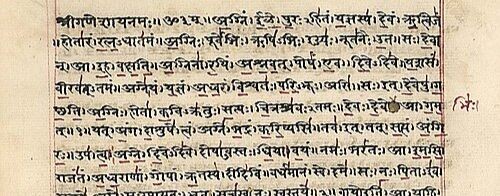 श्रीगणेशायनमः॥ओ३म्॥अग्निं।ईळे।पुरःऽहितं।यज्ञस्य।देवं।ऋत्विजं
।होतारं।रत्नऽधातमं।अग्निः।पूर्वेभिः।ऋषिऽभिः।ईड्यः।नूतनैः।उत।सः।देवा
न्।आ।इह।वक्षति।अग्निना।रयिं।अश्नवत्।पोषं।एव।दिवेऽदिवे।यशसं
वीरवत्ऽतमं।अग्ने।यं।यज्ञं।अध्वरं।विश्वतः।परिऽभूः।असि।सः।इत्।देवेषु।ग
च्छति।अग्निः।होता।कविऽक्रतुः।सत्यः।चित्रश्रवःऽतमः।देवः।देवे।आ।गम
भिः
त्॥१॥यत्।अंग।दाशुषे।त्वं।अग्ने।भद्रं।करिष्यसि।तव।इत्।तत्।सत्यं।अंगि
रः।उप।त्वा।अग्ने।दिवेऽदिवे।दोषाऽवस्तः।धिया।वयं।नमः।भरंतः।आ।इमसि
राजंतं।अध्वराणां।गोपां।ऋतस्य।दीदिविं।वर्धमानं।स्वे।दमे।सः।नः।पिताऽइव